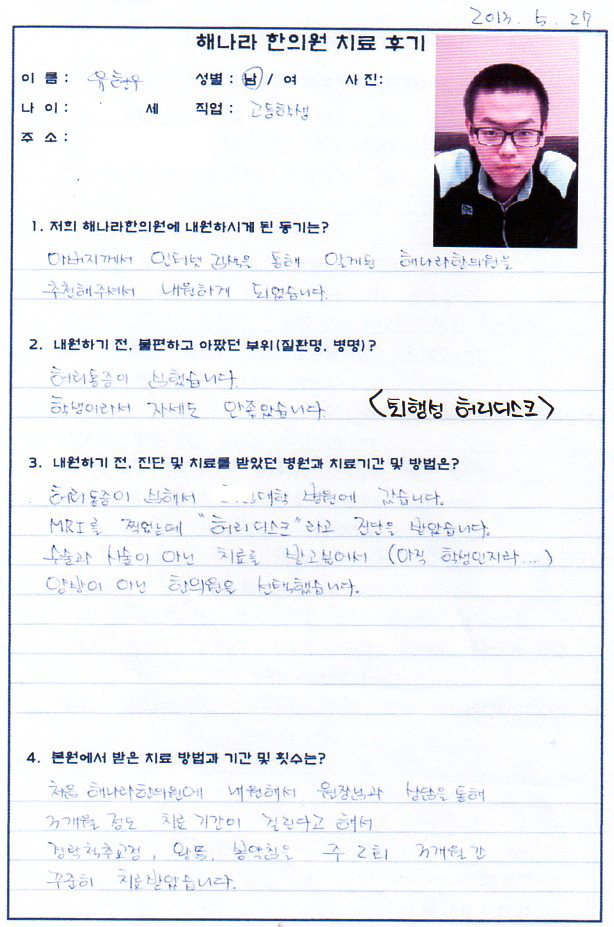 2013. 5. 27
해나라 한의원 치료 후기
이 름 : 유현우 성별 : 남 / 여 사 진:
나 이 : 세 직업 : 고등학생
주 소 :
1. 저희 해나라한의원에 내원하시게 된 동기는?
아버지께서 인터넷 검색을 통해 알게된 해나라한의원을
추천해주셔서 내원하게 되었습니다.
2. 내원하기 전, 불편하고 아팠던 부위(질환명, 병명)?
허리통증이 심했습니다.
학생이라서 자세도 안좋았습니다. <퇴행성 허리디스크>
3. 내원하기 전, 진단 및 치료를 받았던 병원과 치료기간 및 방법은?
허리통증이 심해서 대학 병원에 갔습니다.
MRI를 찍었는데 "허리디스크"라고 진단을 받았습니다.
수술과 시술이 아닌 치료를 받고싶어서 (아직 학생인지라...)
양방이 아닌 한의원을 선택했습니다.
4. 본원에서 받은 치료 방법과 기간 및 횟수는?
처음 해나라한의원에 내원해서 원장님과 상담을 통해
3개월 정도 치료 기간이 걸린다고 해서
경락척추교정, 왕뜸, 봉약침을 주 2회 3개월간
꾸준히 치료받았습니다.